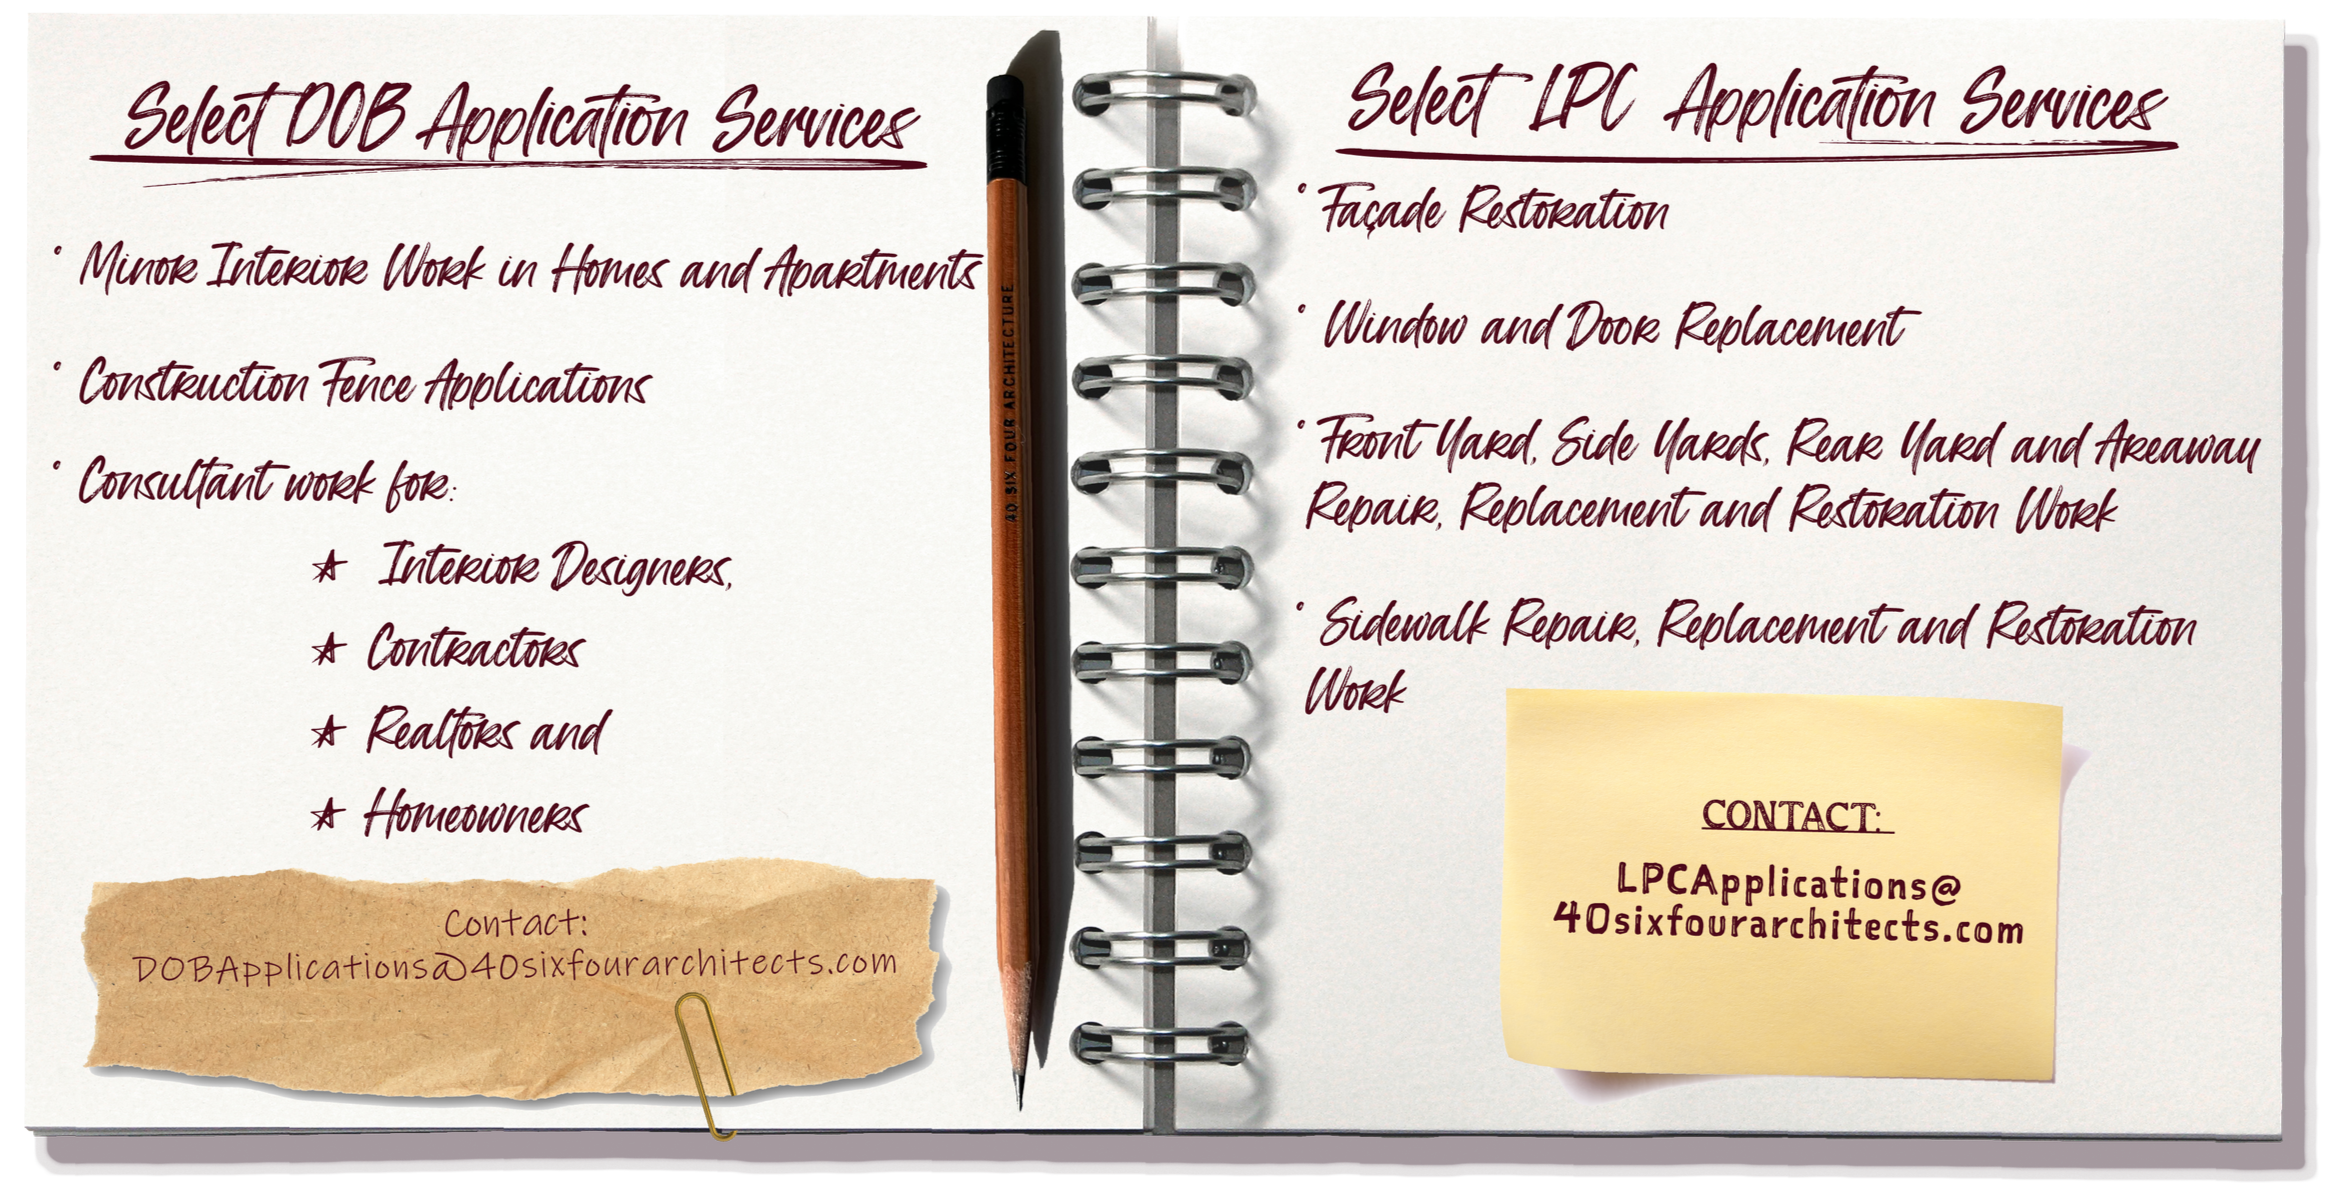 Select DOB Application Services
• Minor Interior Work in Homes and Apartments
• Construction Fence Applications
• Consultant work for:
★ Interior Designers,
★ Contractors
★ Realtors and
★ Homeowners
Contact:
DOBApplications@40sixfourarchitects.com
40 SIX FOUR ARCHITECTURE
Select LPC Application Services
• Façade Restoration
• Window and Door Replacement
• Front Yard, Side Yards, Rear Yard and Areaway
Repair, Replacement and Restoration Work
• Sidewalk Repair, Replacement and Restoration
Work
CONTACT:
LPCApplications@
40sixfourarchitects.com